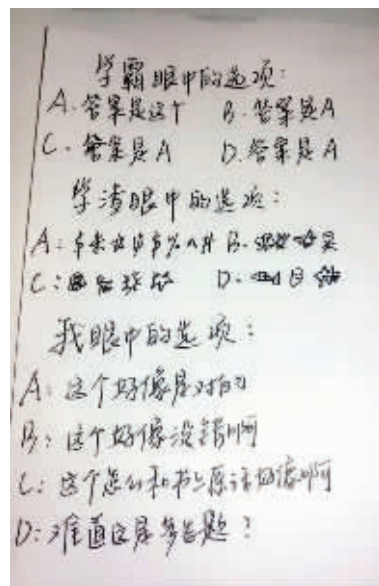 学霸眼中的选项:
A.答案是这个 B.答案是A
C.答案是A D.答案是A
学渣眼中的选项:
A: B.
C: D.
我眼中的选项:
A:这个好像是对的
B:这个好像没错啊
C:这个怎么和书上原话好像啊
D:准道这是多选题?